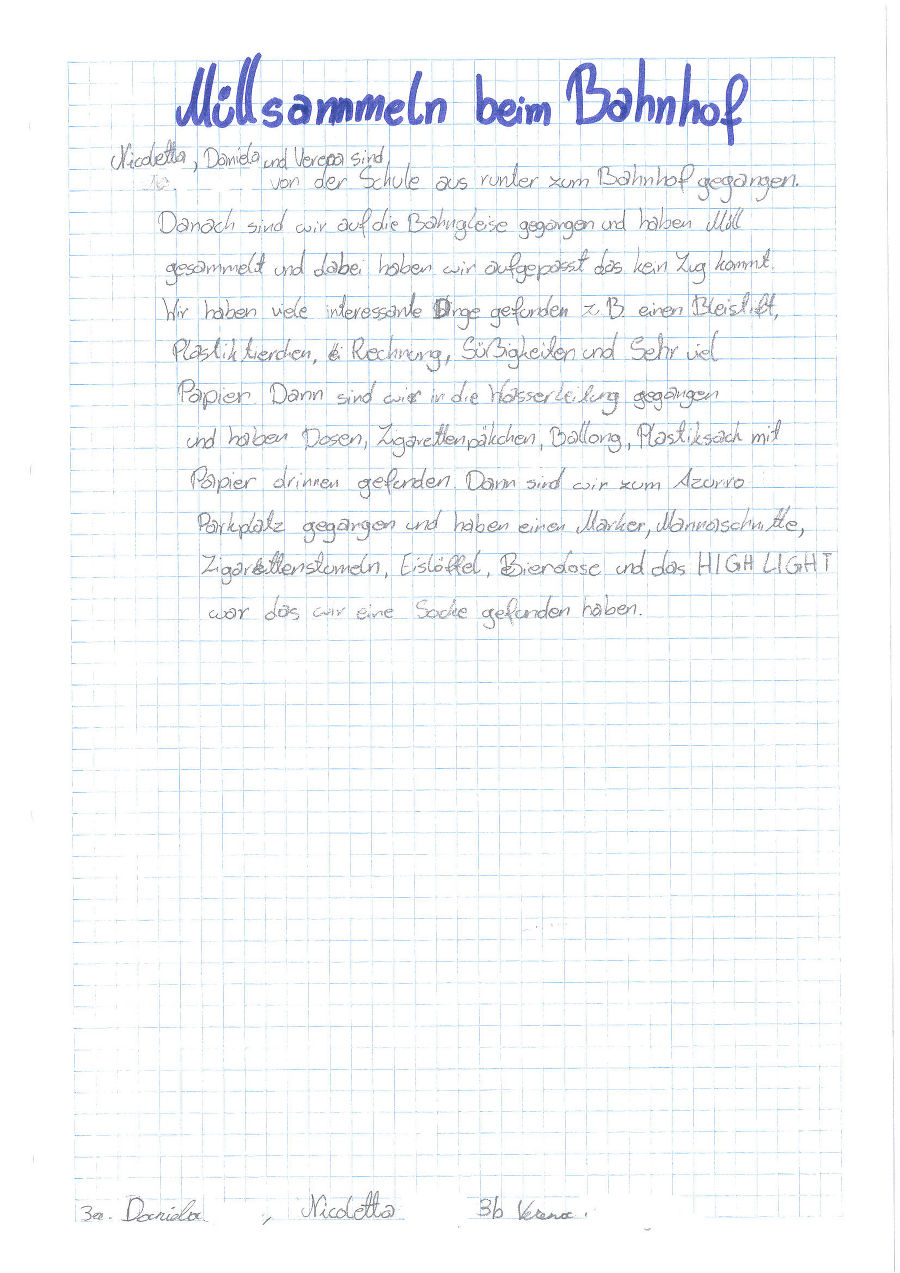 Müllsammeln beim Bahnhof
Nicoletta, Daniela und Verena sind
von der Schule aus runter zum Bahnhof gegangen.
Danach sind wir auf die Bahngleise gegangen und haben Müll
gesammelt und dabei haben wir aufgepasst das kein Zug kommt.
Wir haben viele interessante Dinge gefunden z. B einen Bleistift,
Plastiktierchen, Rechnung, Süßigkeiten und Sehr viel
Papier. Dann sind wir in die Wasserleitung gegangen
und haben Dosen, Zigarettenpäkchen, Ballong, Plastiksack mit
Papier drinnen gefunden. Dann sind wir zum Azurro
Parkplatz gegangen und haben einen Marker, Mannaschnitte,
Zigarettenstumeln, Eislöffel, Bierdose und das HIGHLIGHT
war das wir eine Socke gefunden haben.
3a. Daniela, Nicoletta 3b Verena.